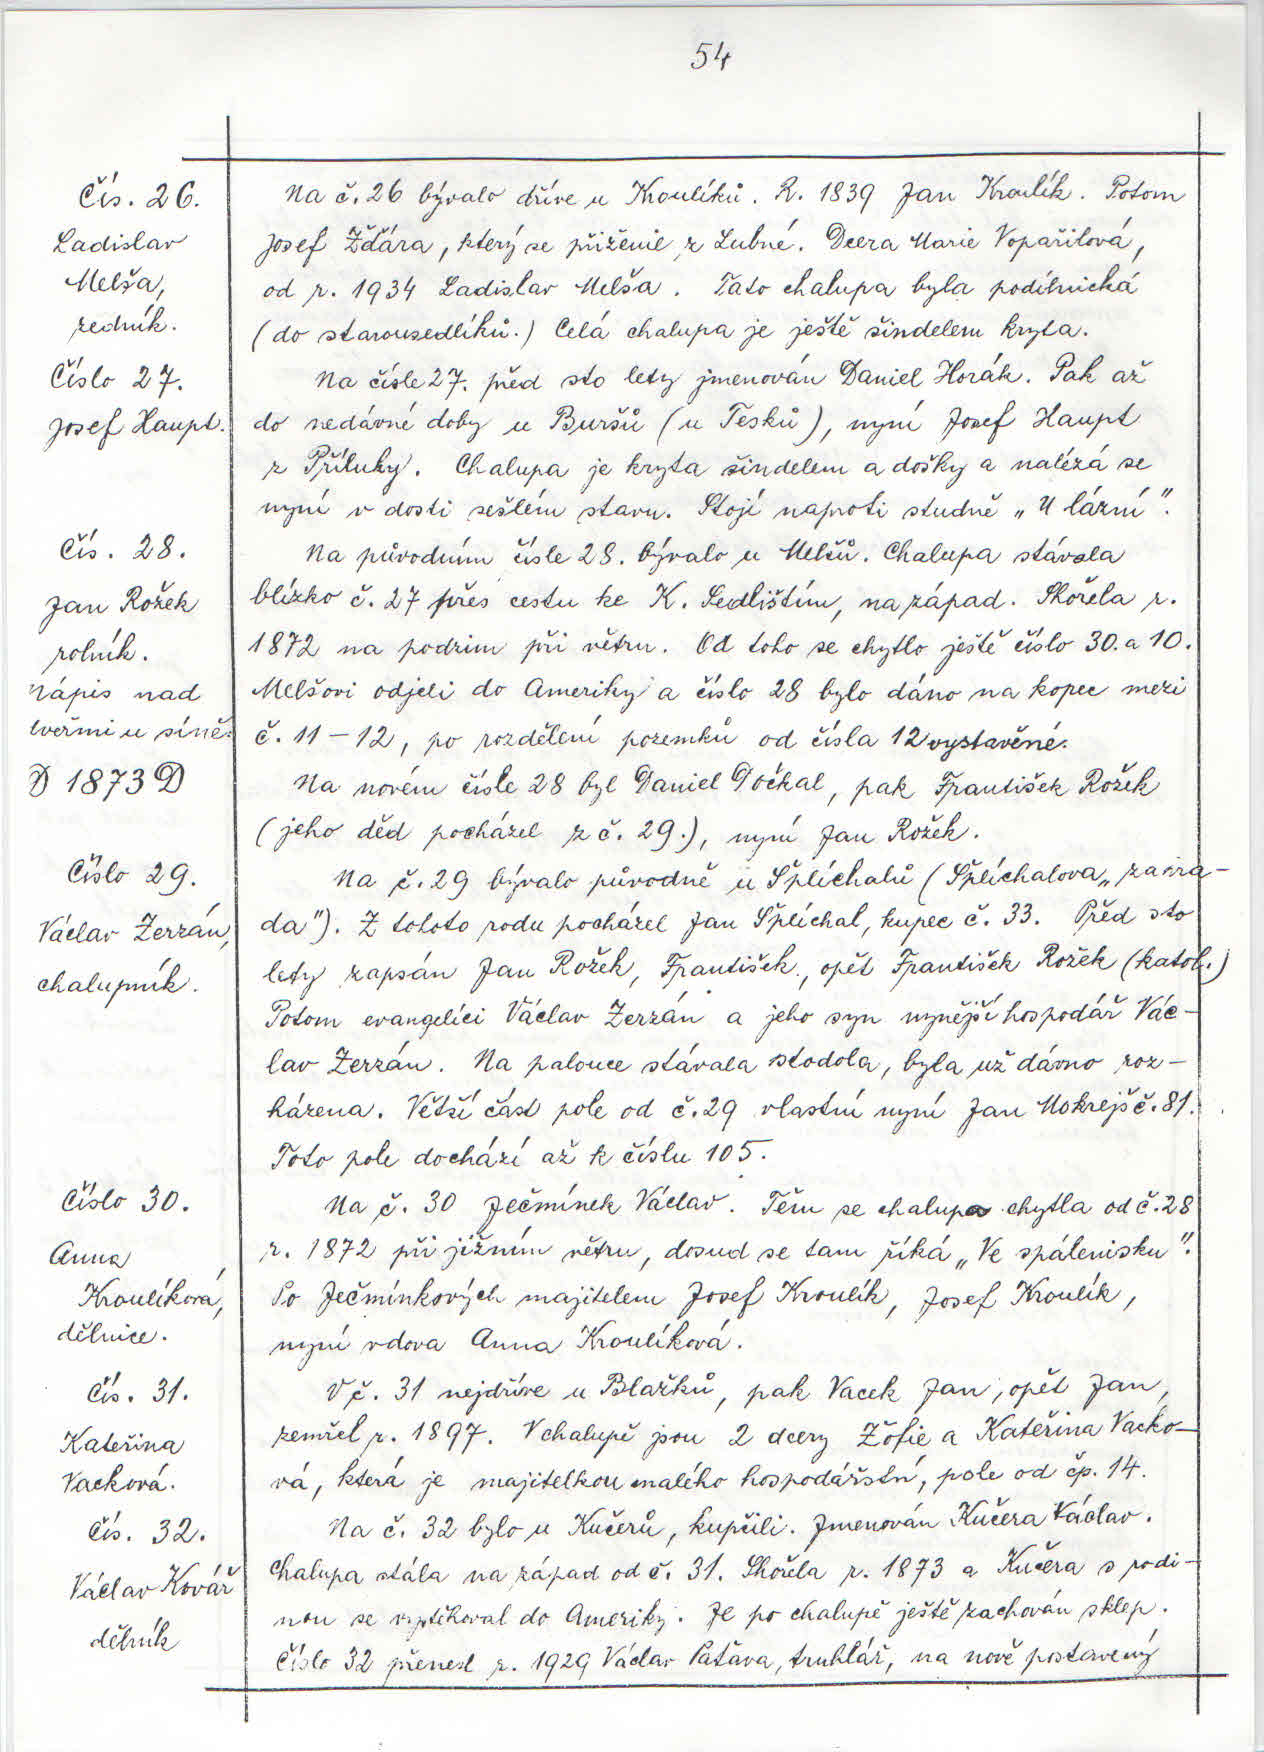 54
Čís. 26.
Ladislav
Melša,
zedník.
Na č. 26 bývalo dříve u Kroulíků. R. 1839 Jan Kroulík. Potom
Josef Žďára, který se přiženil z Lubné. Dcera Marie Vopařilová,
od r. 1934 Ladislav Melša. Tato chalupa byla podílnická
(do starousedlíků.) Celá chalupa je ještě šindelem kryta.
Číslo 27.
Josef Haupt.
Na čísle 27. před sto lety jmenován Daniel Horák. Pak až
do nedávné doby u Buršů (u Tesků), nyní Josef Haupt
z Příluky. Chalupa je kryta šindelem a došky a nalézá se
nyní v dosti sešlém stavu. Stojí naproti studně „U lázní".
Čís. 28.
Jan Rožek
rolník.
Nápis nad
dveřmi u síně:
D 1873 D
Na původním čísle 28. bývalo u Melšů. Chalupa stávala
blízko č. 27 přes cestu ke K. Sedlištím, na západ. Shořela r.
1872 na podzim při větru. Od toho se chytlo ještě číslo 30. a 10.
Melšovi odjeli do Ameriky a číslo 28 bylo dáno na kopec mezi
č. 11 – 12, po rozdělení pozemků od čísla 12 vystavěné.
Na novém čísle 28 byl Daniel Dočkal, pak František Rožek
(jeho děd pocházel z č. 29.), nyní Jan Rožek.
Číslo 29.
Václav Zerzán,
chalupník.
Na č. 29 bývalo původně u Šplíchalů (Šplíchalova „zahra-
da"). Z tohoto rodu pocházel Jan Šplíchal, kupec č. 33. Před sto
lety zapsán Jan Rožek, František, opět František Rožek (katol.)
Potom evangelíci Václav Zerzán a jeho syn nynější hospodář Vác-
lav Zerzán. Na palouce stávala stodola, byla už dávno roz-
házena. Větší část pole od č. 29 vlastní nyní Jan Mokrejš č. 81.
Toto pole dochází až k číslu 105.
Číslo 30.
Anna
Kroulíková,
dělnice.
Na č. 30 Ječmínek Václav. Těm se chalupa chytla od č. 28
r. 1872 při jižním větru, dosud se tam říká „Ve spálenisku".
Po Ječmínkových majitelem Josef Kroulík, Josef Kroulík,
nyní vdova Anna Kroulíková.
Čís. 31.
Kateřina
Vacková.
V č. 31 nejdříve u Blažků, pak Vacek Jan, opět Jan,
zemřel r. 1897. V chalupě jsou 2 dcery Žofie a Kateřina Vacko-
vá, která je majitelkou malého hospodářství, pole od čp. 14.
Čís. 32.
Václav Kovář
dělník
Na č. 32 bylo u Kučerů, kupčili. Jmenován Kučera Václav.
Chalupa stála na západ od č. 31. Shořela r. 1873 a Kučera s rodi-
nou se vystěhoval do Ameriky. Je po chalupě ještě zachován sklep.
Číslo 32 přenesl r. 1929 Václav Patava, truhlář, na nově postavený